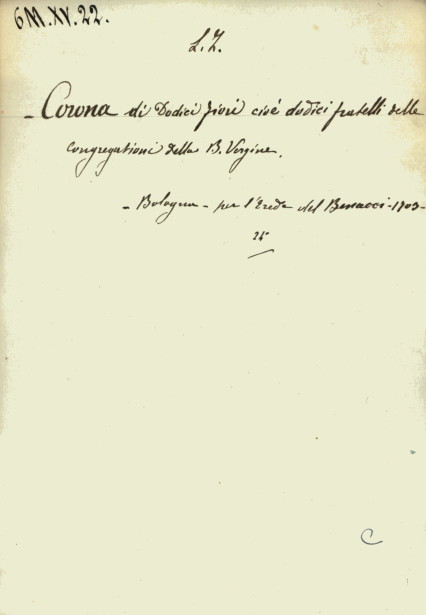 6M.XV.22.
L.Z.
- Corona di Dodici fiori cioè dodici fratelli delle
Congregationi della B. Vergine.
- Bologna - per l'Erede del Benacci - 1703 -
C